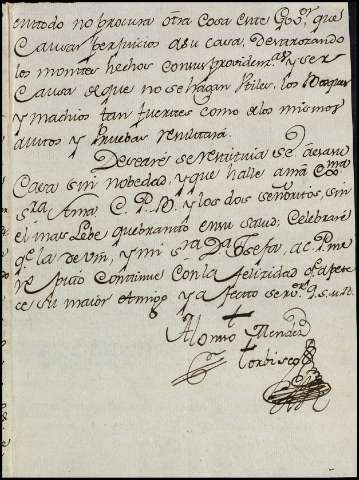 entodo no procura ôtra Cosa este Gov.or que
Causar perjuicios asu Casa, desvaratando
los montes hechos con sus providenz.as y ser
Causa de que no se hagan ûtiles, los Bosques
y machios tan fuertes como de los mismos
autos y Pruebas resultara.
Deseare se restituia se d. a esa su
Casa sin nobedad, y que halle a mi ss.ma
s.ra Ama C. P. B. y los dos señoritos, sin
el mas Lebe quebranto en su salud; Celebrare
q.e la de Vm, y mi s.ra D.a Josefa, a C. P. me
repitio Continue Con la felizidad q.e apete
ce su maior Amigo y afecto servi.or q. s. m. B.
Alonso Mendez
tordiso